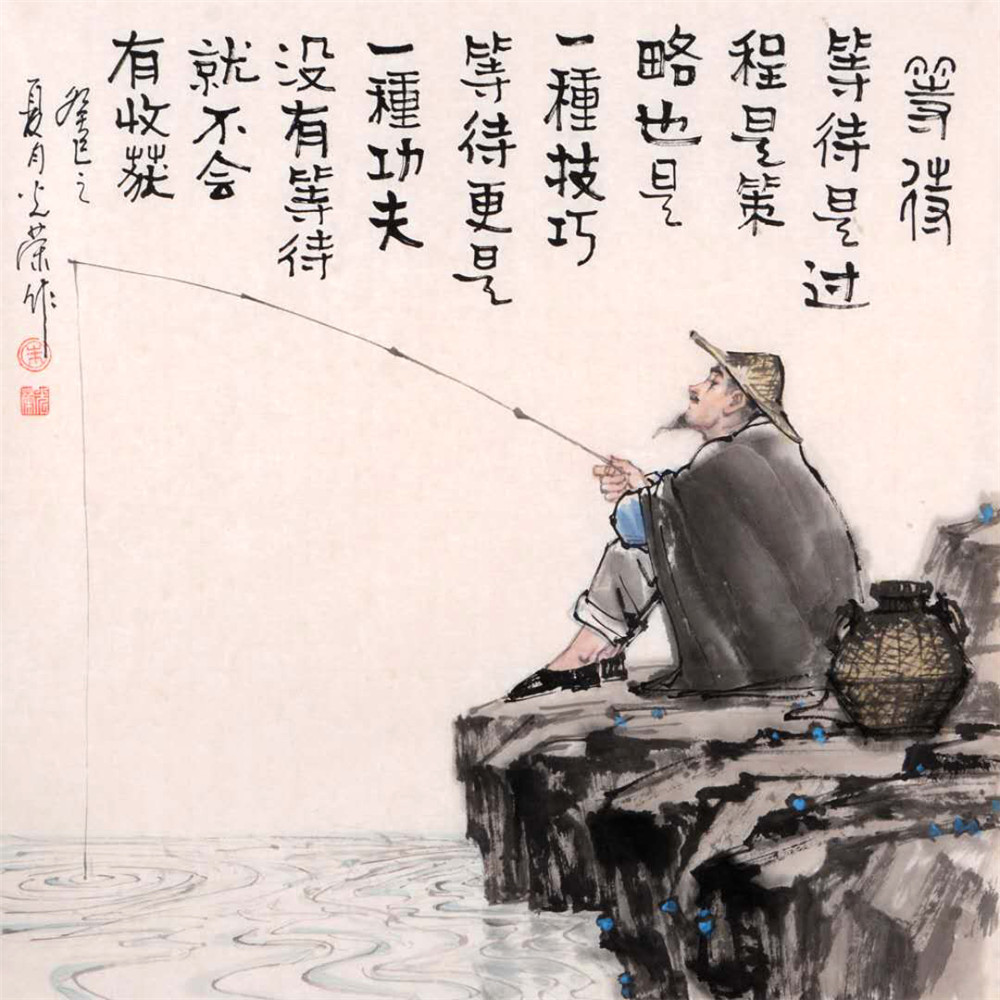 等待
等待是过
程是策
略也是
一種技巧
等待更是
一種功夫
没有等待
就不会
有收获
癸巳之
夏月光荣作